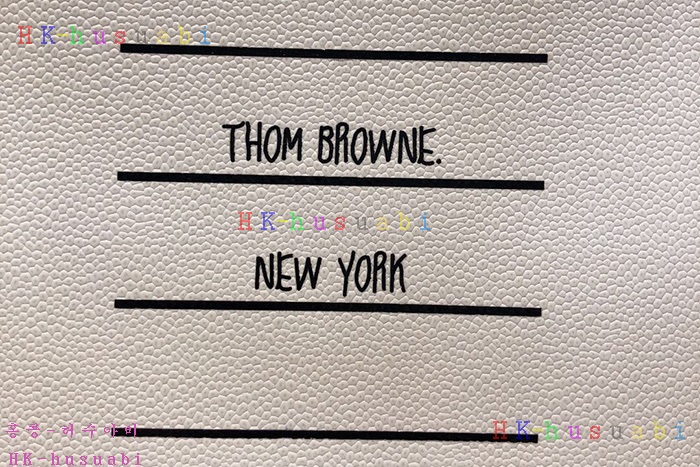 HK-husuabi
THOM BROWNE.
HK-husuabi
NEW YORK
홍콩-허수아비
HK-husuabi
HK husuabi